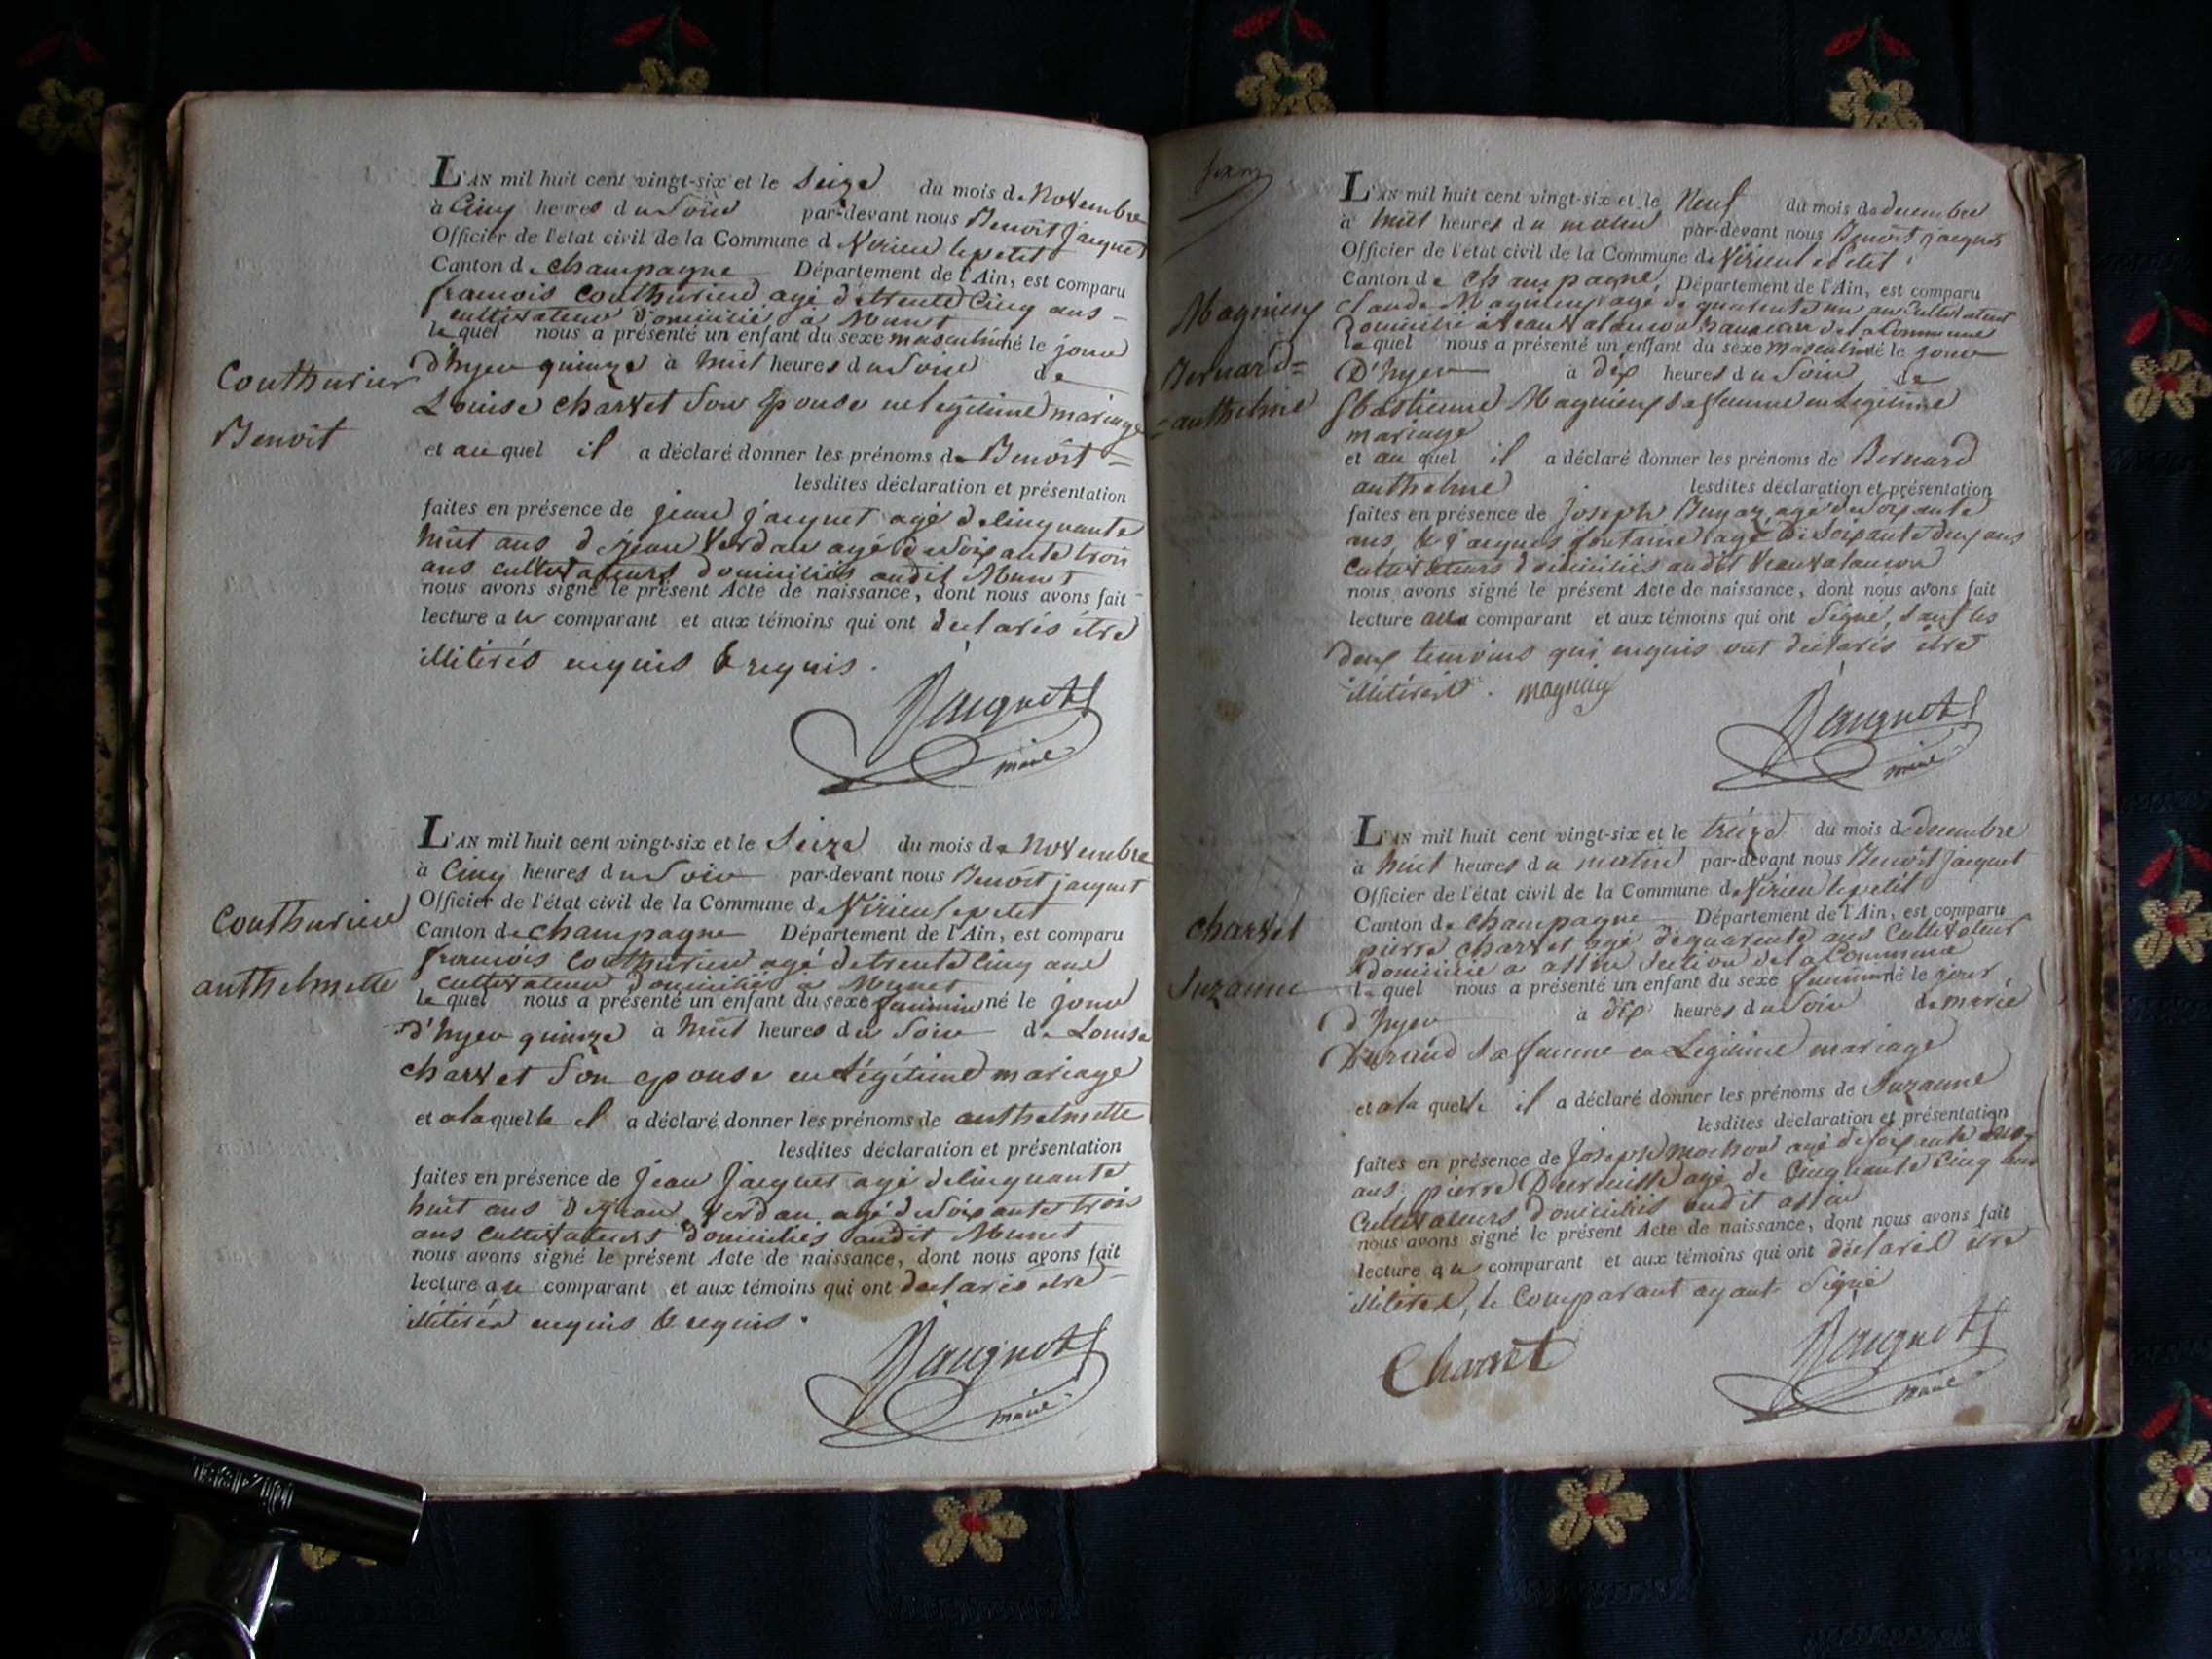 L'AN mil huit cent vingt-six et le Seize du mois de Novembre
à Cinq heures du Soir par-devant nous Benoît jacquet
Officier de l'état civil de la Commune de Virieu le petit
Canton de champagne Département de l'Ain, est comparu
francois Couthurier agé de trente Cinq ans
cultivateur domicilié à Munet
le quel nous a présenté un enfant du sexe masculin né le jour
d'hyer quinze à huit heures du Soir de
Louise charvet Son Epouse en legitime mariage
et au quel il a déclaré donner les prénoms de Benoît
lesdites déclaration et présentation
faites en présence de jean jacquet agé de cinquante
huit ans de jean Verdau agé de Soixante trois
ans cultivateurs domiciliés audit Munet
nous avons signé le présent Acte de naissance, dont nous avons fait
lecture au comparant et aux témoins qui ont declarés être
illiterés enquis & requis.
Jacquet
maire
Couthurier
Benoit
L'AN mil huit cent vingt-six et le Seize du mois de Novembre
à Cinq heures du Soir par-devant nous Benoît jacquet
Officier de l'état civil de la Commune de Virieu le petit
Canton de champagne Département de l'Ain, est comparu
francois Couthurier agé de trente Cinq ans
cultivateur domicilié à Munet
le quel nous a présenté un enfant du sexe feminin né le jour
d'hyer quinze à huit heures du Soir de Louise
charvet Son epouse en Légitime mariage
et a laquelle il a déclaré donner les prénoms de anthelmette
lesdites déclaration et présentation
faites en présence de jean jacquet agé de cinquante
huit ans de jean Verdau agé de Soixante trois
ans cultivateurs domiciliés audit Munet
nous avons signé le présent Acte de naissance, dont nous avons fait
lecture au comparant et aux témoins qui ont declarés être
illiterés enquis & requis.
Jacquet
maire
Couthurier
anthelmette
L'AN mil huit cent vingt-six et le Neuf du mois de decembre
à huit heures du matin par-devant nous Benoît jacquet
Officier de l'état civil de la Commune de Virieu le petit
Canton de Champagne, Département de l'Ain, est comparu
Claude Magnieux agé de quarante un an Cultivateur
domicilié à hameau de la Commune
le quel nous a présenté un enfant du sexe masculin né le jour
D'hyer à dix heures du Soir de
Magnieux Sa femme en Legitime
mariage
et au quel il a déclaré donner les prénoms de Bernard
anthelme lesdites déclaration et présentation
faites en présence de Joseph agé de Soixante
ans & jacques fontaine agé de Soixante deux ans
cultivateurs domiciliés audit
nous avons signé le présent Acte de naissance, dont nous avons fait
lecture au comparant et aux témoins qui ont Signé, Sauf les
deux temoins qui enquis ont declarés être
illiterés. magnieux
Jacquet
maire
Magnieux
Bernard=
=anthelme
L'AN mil huit cent vingt-six et le treize du mois de decembre
à huit heures du matin par-devant nous Benoît jacquet
Officier de l'état civil de la Commune de Virieu le petit
Canton de Champagne Département de l'Ain, est comparu
pierre charvet agé de quarante ans Cultivateur
domicilié a assin Section de la Commune
le quel nous a présenté un enfant du sexe feminin né le jour
d'hyer à dix heures du Soir de marie
Durand Sa femme en Legitime mariage
et a la quelle il a déclaré donner les prénoms de Suzanne
lesdites déclaration et présentation
faites en présence de Joseph mochon agé de Soixante
ans, pierre agé de Cinquante Cinq ans
Cultivateurs domiciliés audit assin
nous avons signé le présent Acte de naissance, dont nous avons fait
lecture au comparant et aux témoins qui ont déclarés être
illiterés, le Comparant ayant Signé
Charvet
Jacquet
maire
charvet
Suzanne